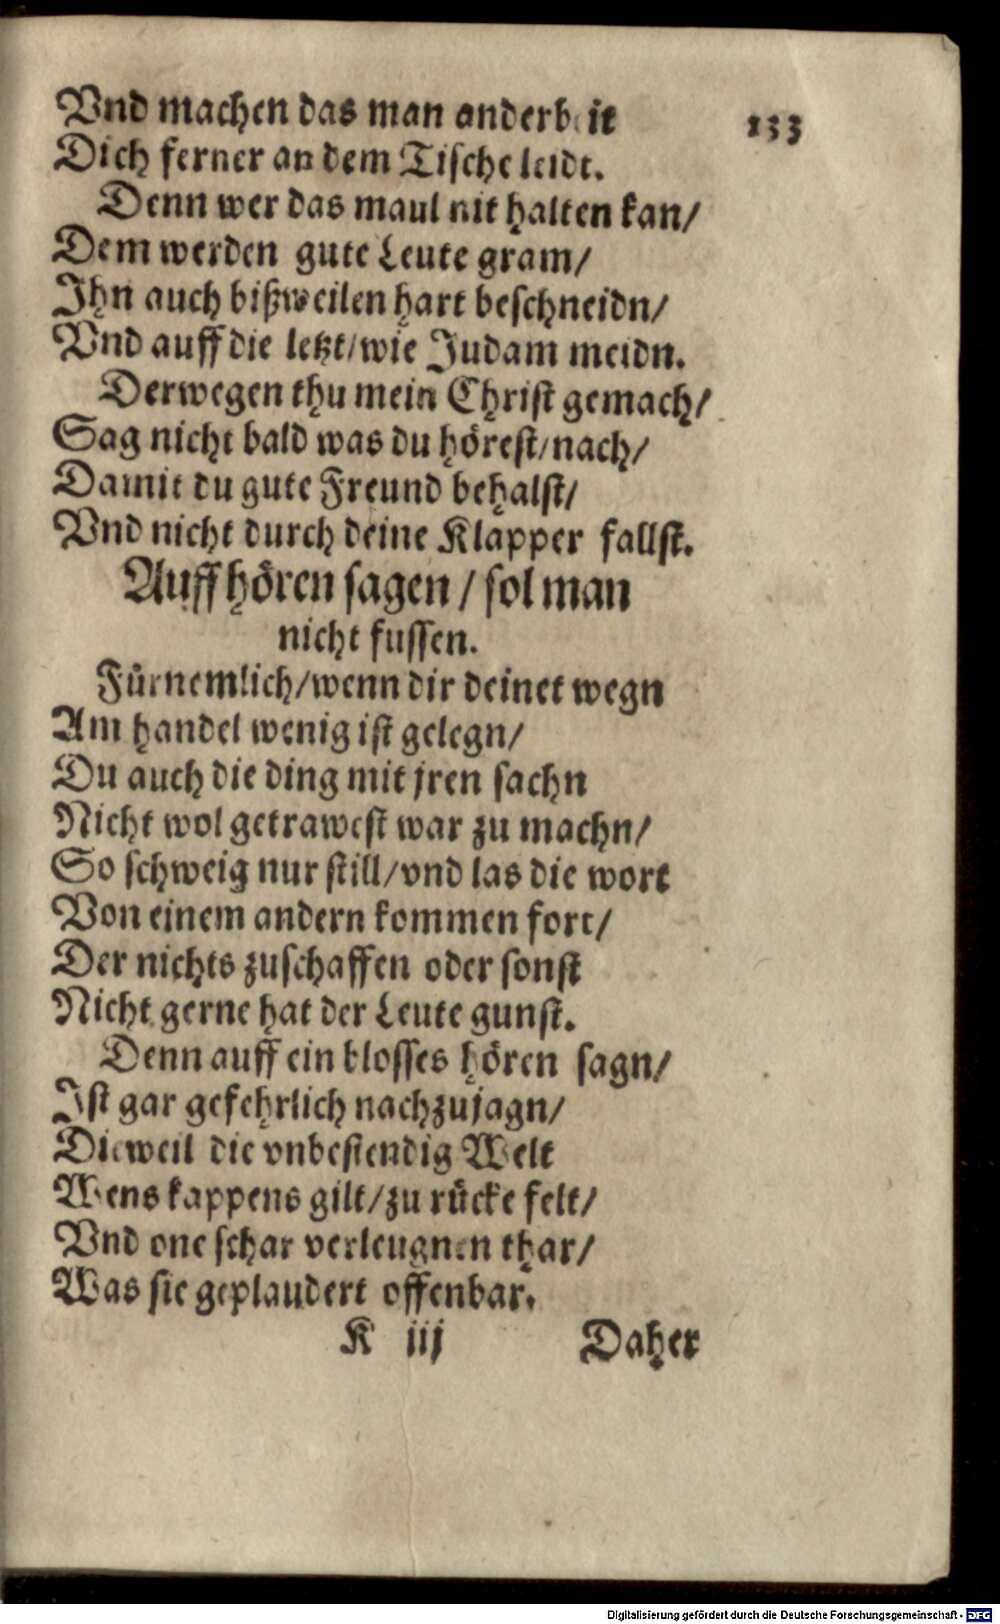 Vnd machen das man anderb it
133
Dich ferner an dem Tische leidt.
Denn wer das maul nit halten kan/
Dem werden gute Leute gram/
Ihn auch bißweilen hart beschneidn/
Vnd auff die letzt/wie Judam meidn.
Derwegen thu mein Christ gemach/
Sag nicht bald was du hörest/nach/
Damit du gute Freund behalst/
Vnd nicht durch deine Klapper fallst.
Auff hören sagen / sol man
nicht fussen.
Fürnemlich/wenn dir deinet wegn
Am handel wenig ist gelegn/
Du auch die ding mit jren sachn
Nicht wol getrawest war zu machn/
So schweig nur still/vnd las die wort
Von einem andern kommen fort/
Der nichts zuschaffen oder sonst
Nicht gerne hat der Leute gunst.
Denn auff ein blosses hören sagn/
Ist gar gefehrlich nachzujagn/
Dieweil die vnbestendig Welt
Wens kappens gilt/zu rücke felt/
Vnd one schar verleugnen thar/
Was sie geplaudert offenbar.
K iij Daher
Digitalisierung gefördert durch die Deutsche Forschungsgemeinschaft - DFG